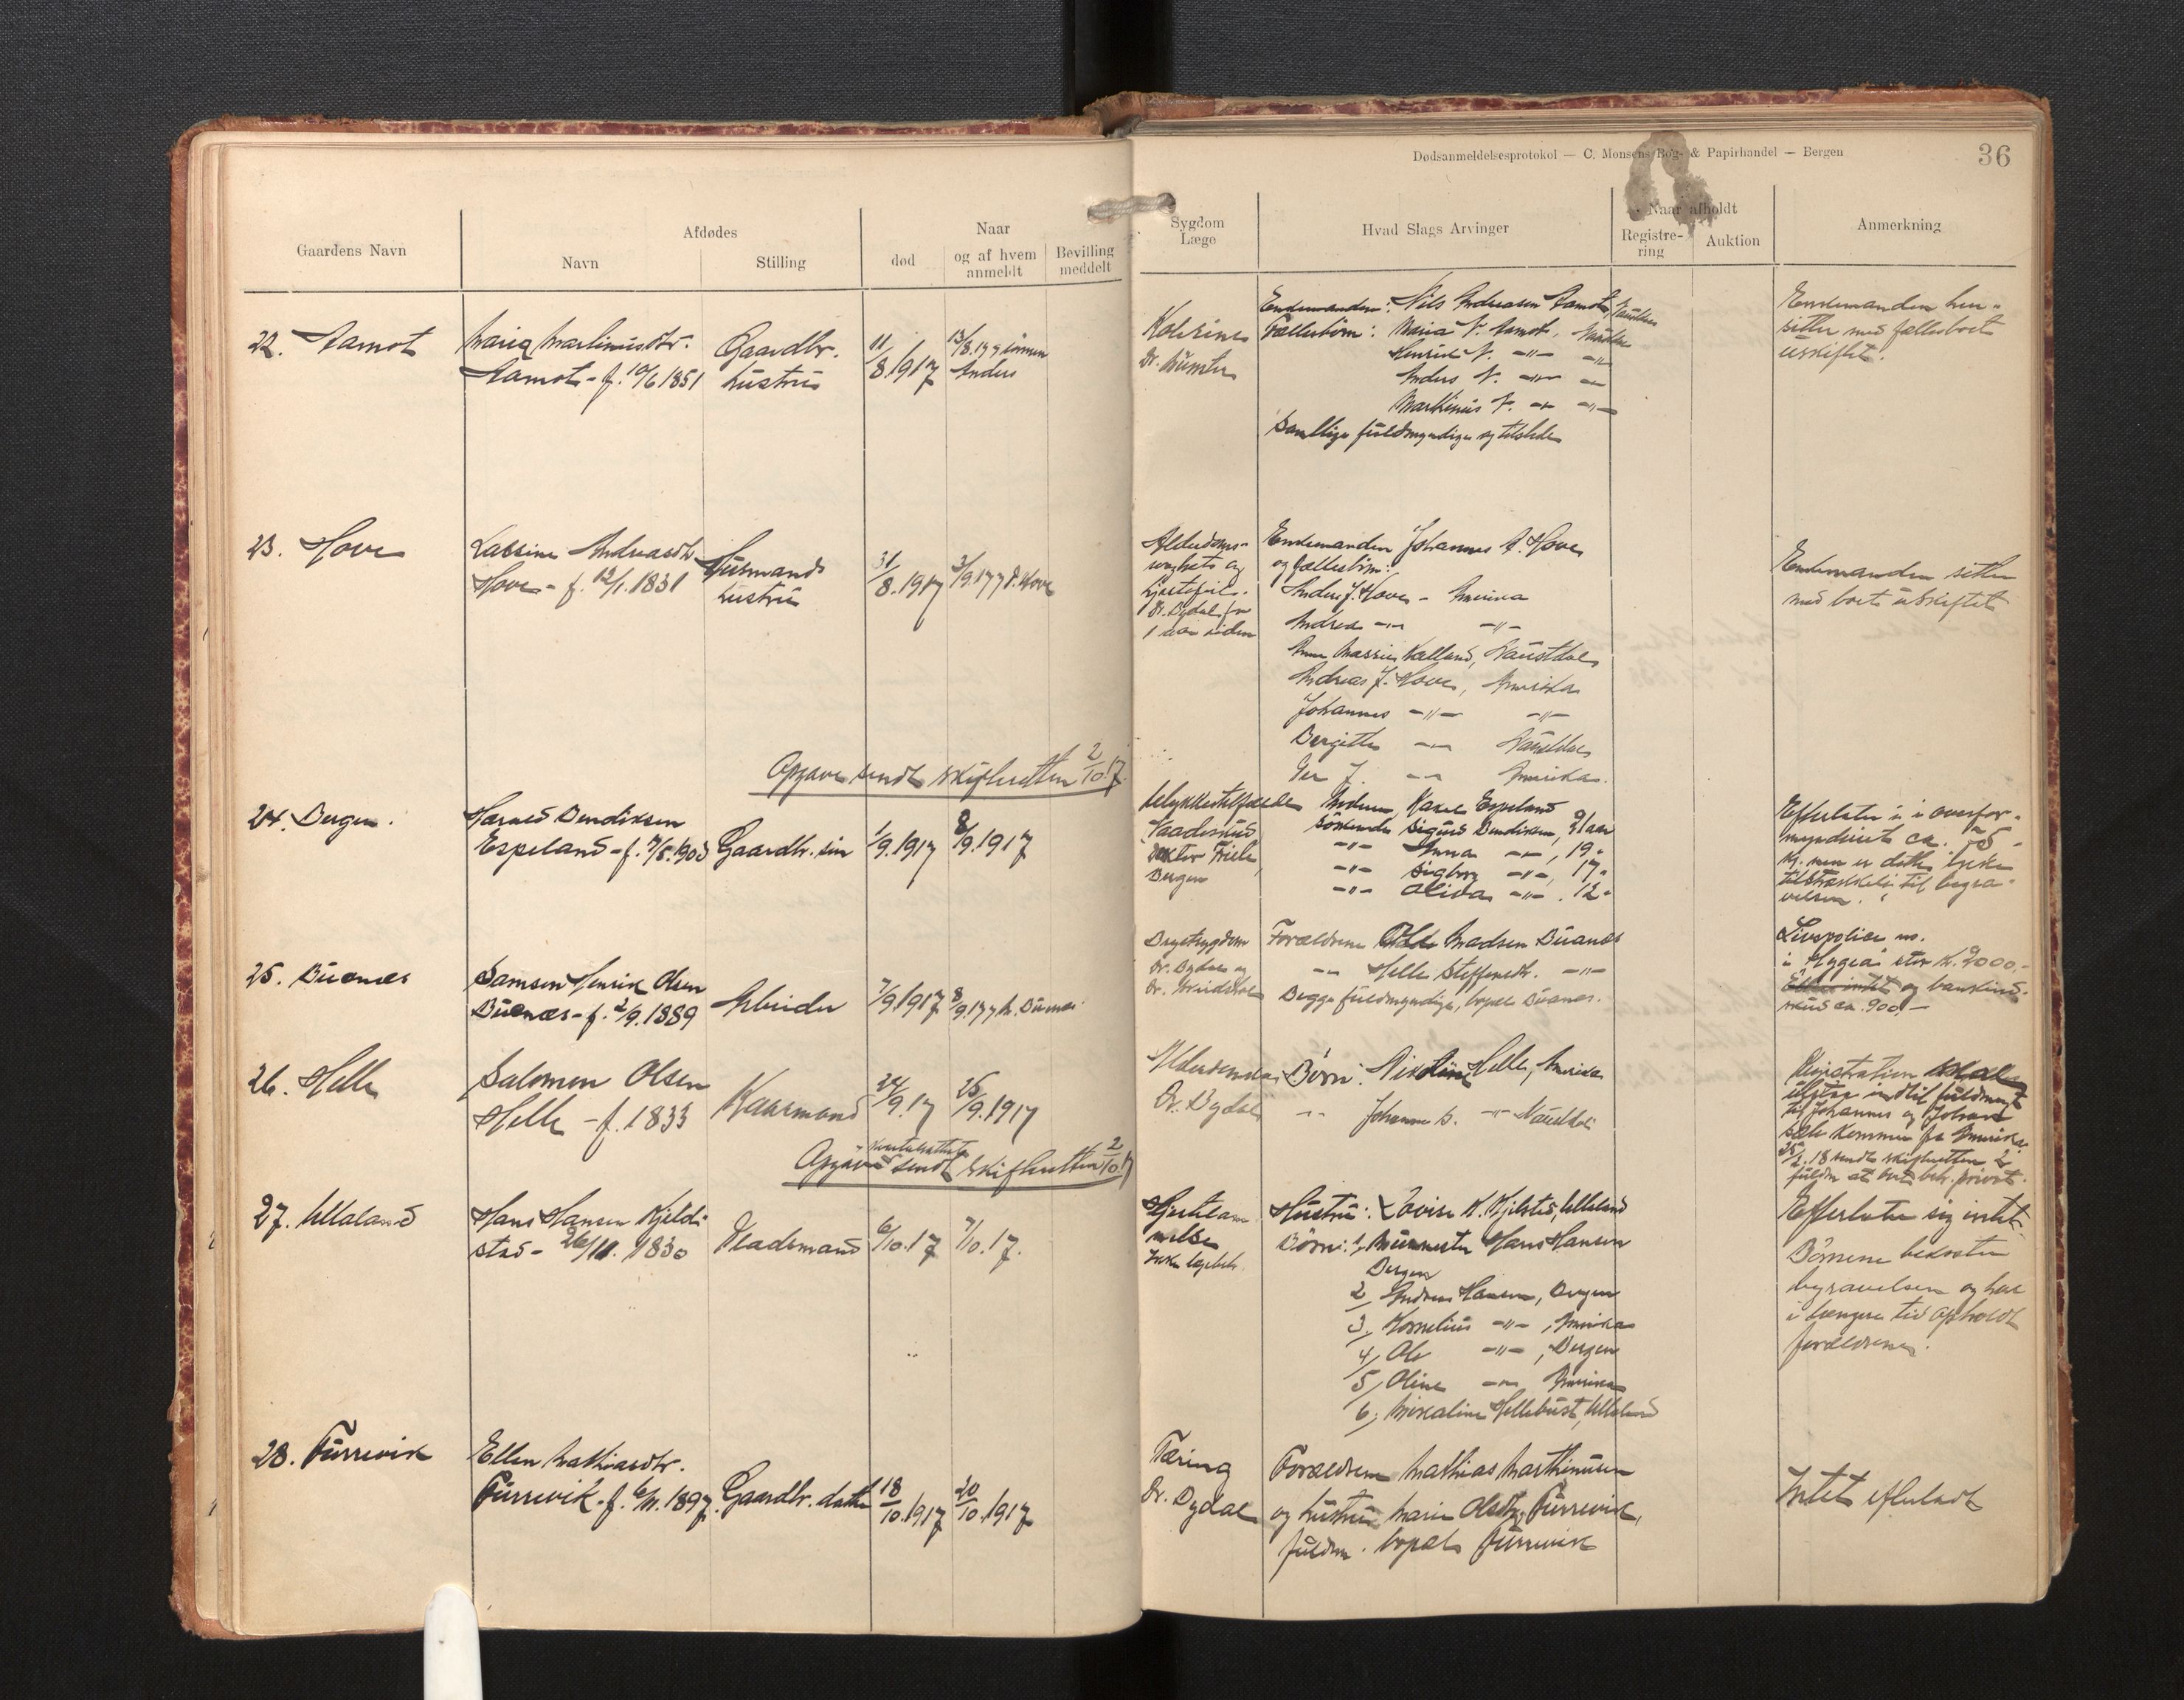 Dødsanmeldelsesprotokol — C. Monsens Bog- & Papirhandel — Bergen
36
Gaardens Navn
Afdødes
Navn
Stilling
Naar
død
og af hvem anmeldt
Bevilling meddelt
Sygdom
Læge
Hvad Slags Arvinger
Naar afholdt
Registre-
ring
Auktion
Anmerkning
22. Aamot
Maria Martinusdtr.
Aamot - f. 10/6 1851
Gaardbr.
hustru
11/8.1917
13/8.17 v sönnen
Anders
Dr.
Enkemanden: Nils Andreasen Aamot, Naustdal
Fællesbörn: Maria N. Aamot, Naustdal
Henrik N. -"- -"-
Anders N. -"- -"-
Martinus N. -"- -"-
Samtlige fuldmyndige og tilstede
Enkemanden hen-
sitter med fællesboet
uskiftet.
23. Hove
Lassine Andreasdtr
Hove - f. 12/1.1831
Husmands
hustru
31/8.1917
3/9.17 v J. Hove
Alderdoms-
svaghets og
hjertefeil.
Dr. Dydal for
1 aar siden
Enkemanden Johannes A. Hove
og fællesbörn:
Anders J. Hove - Amerika
Andrea -"- -"-
Anna Massine Kalland, Naustdal
Andreas J. Hove, Amerika
Johannes -"- -"-
Bergitte -"- Naustdal
Iver J. -"- Amerika.
Enkemanden sitter
med boet uskiftet
Opgave sendt skifteretten 2/10.17.
24. Bergen.
Harald Bendiksen
Espeland - f. 7/5.1903
Gaardbr. sön
1/9.1917
8/9.1917
Ulykkestilfælde
Vaadeskud
Doktor Friele,
Bergen
Moderen, Karen Espeland
Söskende Sigurd Bendiksen, 21 aar
-"- Anna -"-, 19 "
-"- Sigborg -"-, 17 "
-"- Olida -"-, 12 "
Efterlater i overfor-
mynderiet ca. 75 -
kr. men er dette ikke
tilstrækkelig til begra-
velsen.
25. Buenæs
Samson Henrik Olsen
Buenæs - f. 2/9.1889
Arbeider
7/9.1917
8/9.17 v M. Buenæs
Brystsygdom
Dr. Dydal og
Dr.
Forældrene Ole Madsen Buanes
-"- Helle Steffensdtr. -"-
Begge fuldmyndige, bopæl Buanes.
Livspolise no.
i "Hygea" stor kr. 2000,-
og bankind-
skud ca. 900,-
26. Helle
Salomon Olsen
Helle - f. 1833
Kaarmand
24/9.17
25/9.1917
Alderdom
Dr. Dydal
Börn: Nikoline Helle, Amerika
-"- Johannes S. -"- Naustdal
Registration
utstaa indtil fuldmagt
til Johannes
kommer fra Amerika
25/2.18 sendt skifteretten 2
fuldm. at boet beh. privat.
Opgave kvartalsattest sendt skifteretten 2/10.17
27. Ullaland
Hans Hansen Kjeld-
stad - 26/11.1830
Pladsmand
6/10.17
7/10.17.
Hjertelam
melse
Ikke lægebeh.
Hustru: Lovise K. Kjelstad, Ulleland
Börn: 1, Murmester Hans Hansen
Bergen
2, Andreas Hansen, Bergen
3, Kornelius -"-, Amerika
4, Ole -"-, Bergen
5, Oline -"- Amerika
6, Mikaline Hellebust, Ulleland
Efterlater sig intet.
Börnene bekoster
begravelsen og har
i længere tid opholdt
forældrene.
28. Furrevik
Ellen Mathiasdtr.
Furrevik - f. 6/11.1897.
Gaardbr. datter
18/10.1917
20/10.1917
Tæring
Dr. Dydal
Forældrene Mathias Marthinusen
og hustru Marie Olsdtr. Furrevik,
fuldm. bopæl Furrevik
Intet efterladt